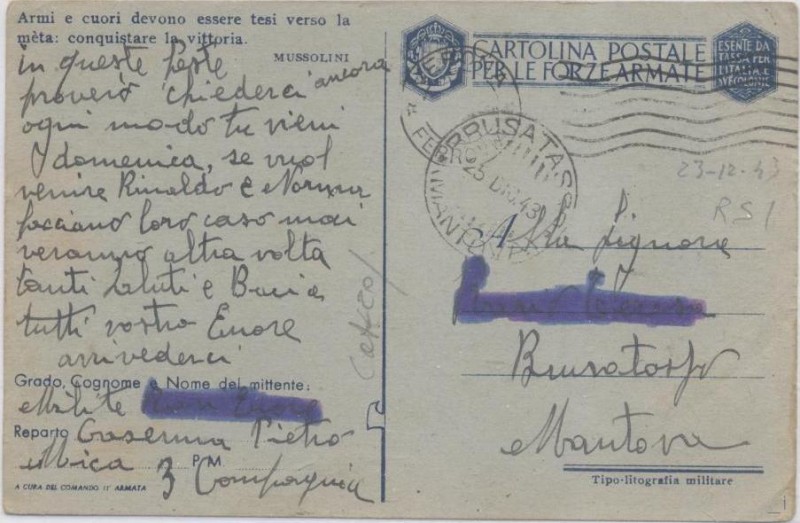 Armi e cuori devono essere tesi verso la
mèta: conquistare la vittoria.
MUSSOLINI
in queste feste
proverò chiederci ancora
ogni modo tu vieni
domenica, se vuol
venire Rinaldo e Norma
facciano loro caso mai
veranno altra volta
tanti saluti e Baci a
tutti vostro Ettore
arrivederci
Grado, Cognome e Nome del mittente:
Milite
Reparto Caserma Pietro
Micca P.M.
3 Compagnia
A CURA DEL COMANDO 11ª ARMATA
CARTOLINA POSTALE
PER LE FORZE ARMATE
ESENTE DA
TASSA PER
L'ITALIA E
FERROV
BRUSATASSO
DIC.43
MANTOVA
23-12-43
RSI
Alla Signora
Brusatasso
Mantova
Tipo-litografia militare